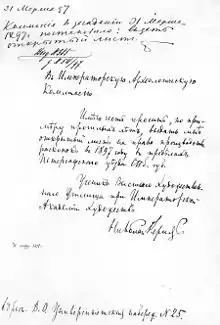 31 Марта 97
Комиссія въ засѣданіи 31 Марта
1897г. постановила: выдать
открытый листъ.
Въ Императорскую Археологическую
Коммисію
Имѣю честь просить, по при-
мѣру прошлыхъ лѣтъ, выдать мнѣ
открытый листъ на право производства
раскопокъ въ 1897 году въ предѣлахъ
Петергофскаго уѣзда СПб. губ.
Ученикъ Высшаго Художествен-
наго Училища при Императорской
Академіи Художествъ
Николай Рерихъ
В. О. Университетская набереж. №25